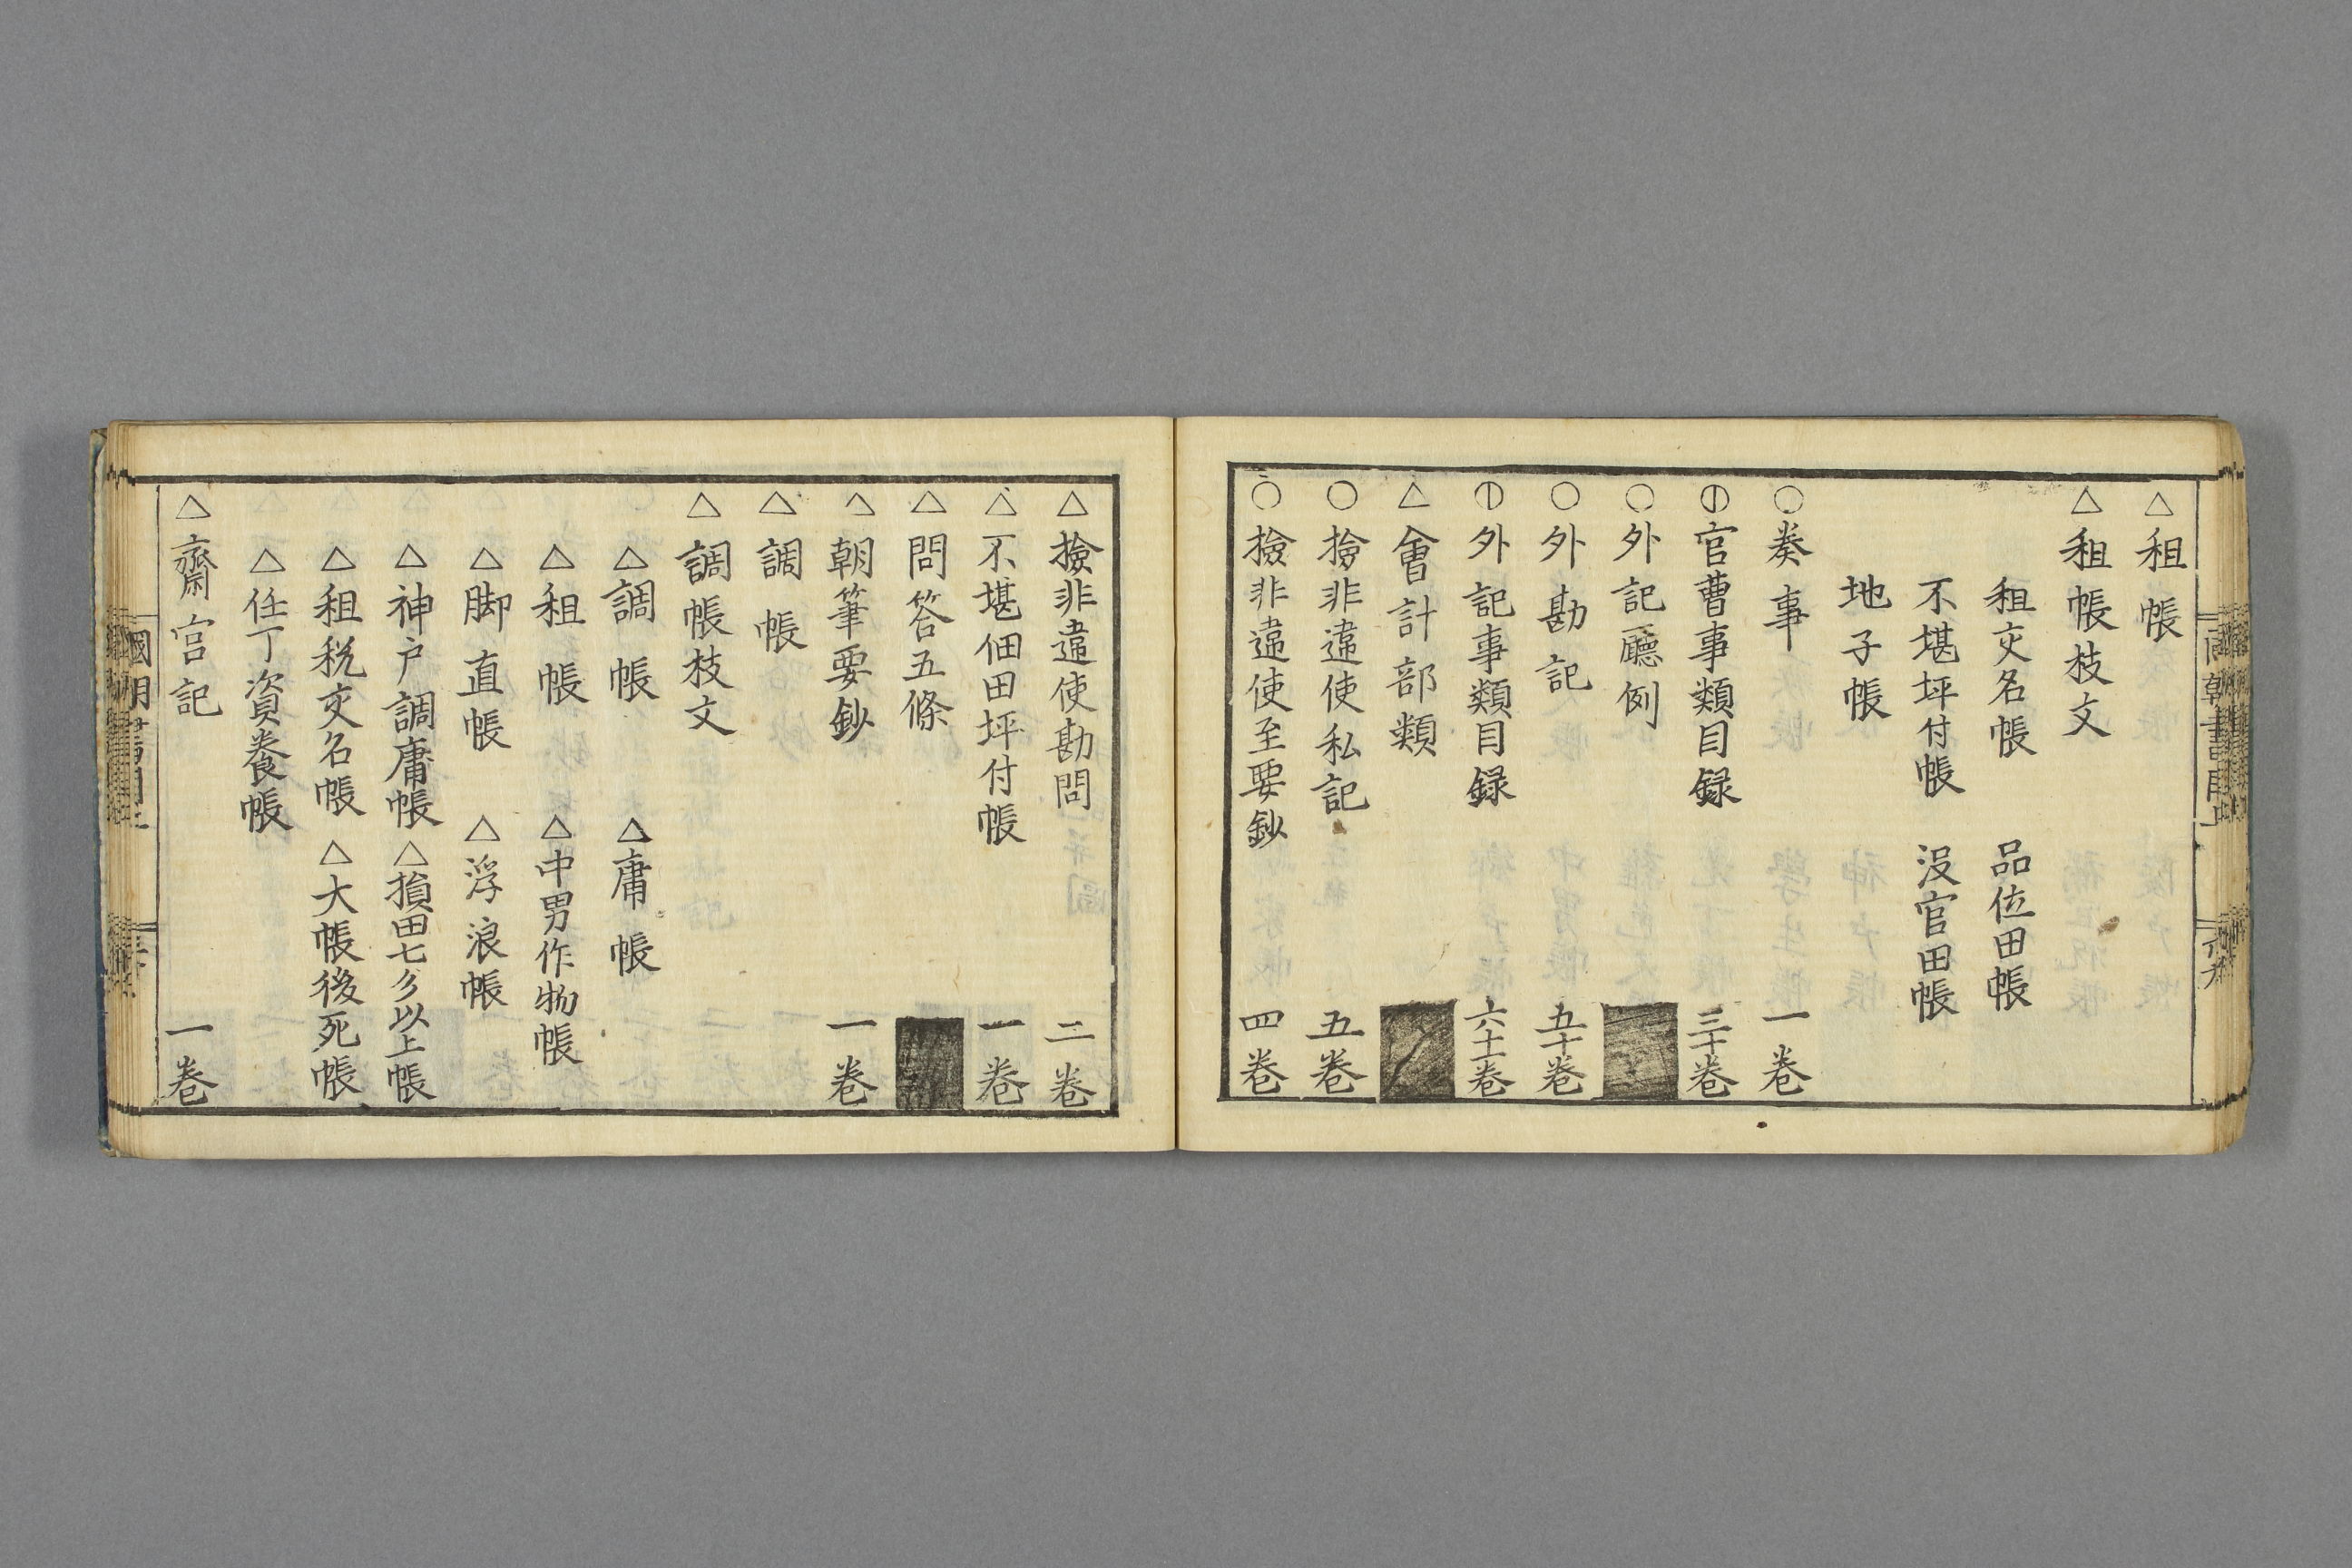 △租帳
△租帳枝文
租交名帳 品位田帳
不堪坪付帳 没官田帳
地子帳
○奏事 一卷
⦶官曹事類目録 三十卷
○外記廳例
○外勘記 五十卷
⦶外記事類目録 六十一卷
△會計部類
○撿非違使私記 五卷
○撿非違使至要鈔 四卷
△撿非違使勘問 二卷
△不堪佃田坪付帳 一卷
△問答五條
△朝筆要鈔 一卷
△調帳
△調帳枝文
△調帳 △庸帳
△租帳 △中男作物帳
△脚直帳 △浮浪帳
△神戸調庸帳 △損田七分以上帳
△租税交名帳 △大帳後死帳
△任丁資養帳
△齋宮記 一卷